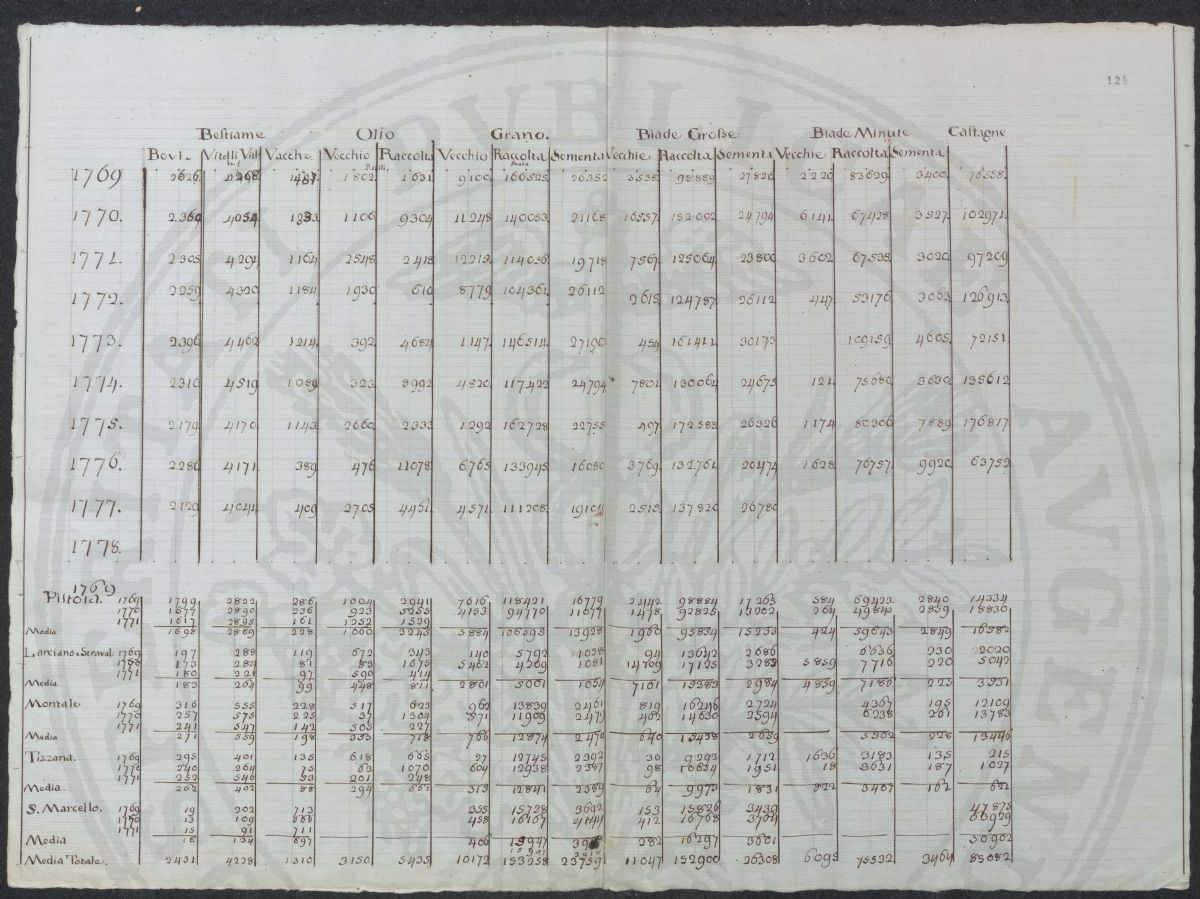 124
Bestiame Olio Grano. Biade Grosse Biade Minute Castagne
Bovi. Vitelli Vacche Vecchio Raccolta Vecchio Raccolta Sementa Vecchie Raccolta Sementa Vecchie Raccolta Sementa
1769 2626 4268 1802 1631 9100 166525 26352 3538 98889 27826 2220 83629 3400 76558
1770. 2360 4054 1106 9304 11248 140053 21168 16557 152002 24794 6141 67428 3527 102971
1771. 2305 4294 1164 2548 2418 12213 114056 19718 7567 125064 23800 3602 67538 3020 97209
1772. 2259 4320 1184 1930 610 8779 104361 26112 2615 124787 26112 447 53176 3063 126913
1773. 2396 4462 1214 392 4684 1147 146514 27190 454 161411 30173 109159 4605 72151
1774. 2310 4519 1089 323 8992 4820 117422 24794 7801 130064 24675 121 75680 3630 135612
1775. 2179 4170 1143 2660 2333 1292 162728 22755 497 172583 26326 1174 80306 7889 176817
1776. 2286 4171 389 476 11078 6765 133945 16080 3769 132761 20474 1628 76757 9920 63752
1777. 2129 4044 409 2705 4461 4571 111208 19104 2515 137820 26780
1778.
1769
Pistoia. 1769 1799 2822 286 1004 2941 7616 118421 16779 2442 98884 17263 584 69423 2840 14334
1770 1677 2890 236 923 5255 4153 9477 11077 1478 92825 13202 264 49864 2859 18830
1771 1617 2895 161 1252 1529
Media 1698 2869 228 1060 3243 5884 106595 13928 1960 95854 15233 424 59643 2849 16582
Larciano e Seraval: 1769 197 288 119 672 343 140 5792 1028 94 13642 2686 6656 230 2020
1770 173 284 81 83 1675 5462 4209 1081 14709 17125 3283 5859 7716 220 5042
1771 180 221 97 590 414
Media 183 264 99 448 811 2801 5001 1054 7101 15383 2984 4859 7186 225 3531
Montale 1769 316 555 228 517 623 962 13839 2461 819 16246 2724 4367 195 12109
1770 257 575 225 37 1304 571 11909 2479 462 14630 2594 6238 261 13783
1771 241 547 142 505 227
Media 271 559 198 353 718 766 12874 2470 640 15438 2659 5302 228 13446
Tizzana. 1769 295 401 135 618 665 27 12745 2392 30 9293 1712 1636 3183 135 215
1770 240 264 75 63 1070 604 12938 2387 98 10654 1951 18 3631 187 1027
1771 252 546 53 201 248
Media. 262 402 88 294 661 315 12841 2389 64 9973 1831 822 3407 162 621
S. Marcello. 1769 19 202 713 355 15728 3692 153 15826 3439 47875
1770 13 109 666 458 16167 4144 412 16768 3764 66929
1771 15 91 711
Media 16 134 697 406 15947 282 16297 3601 50902
Media Totale. 2431 4228 1310 3150 5435 10172 153258 23759 11047 152900 26308 6095 75532 3464 85082